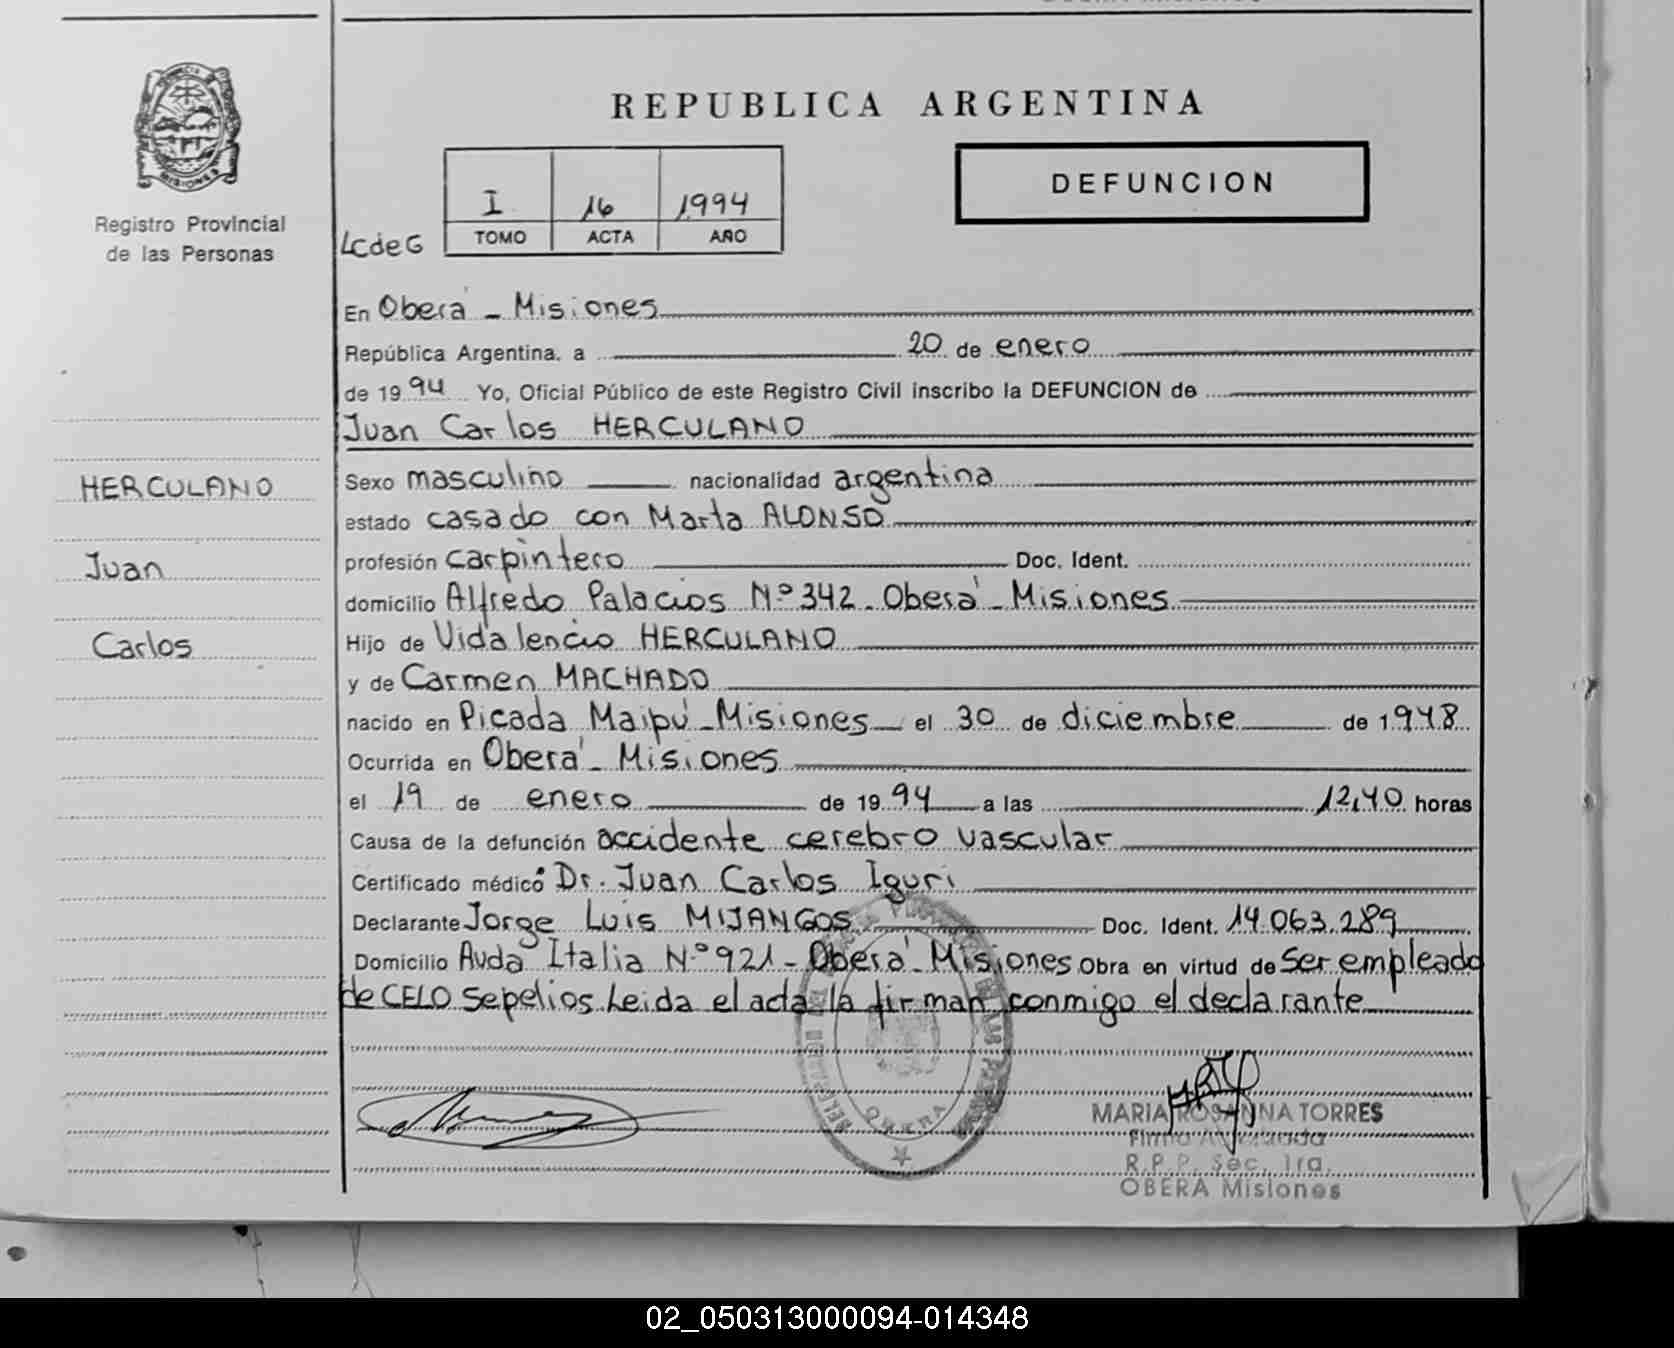 REPUBLICA ARGENTINA
MISIONES
Registro Provincial
de las Personas
I 16 1994
TOMO ACTA AÑO
LcdeG
DEFUNCION
En Oberá - Misiones
República Argentina, a 20 de enero
de 1994 Yo, Oficial Público de este Registro Civil inscribo la DEFUNCION de
Juan Carlos HERCULANO
HERCULANO
Juan
Carlos
Sexo masculino nacionalidad argentina
estado casado con Marta ALONSO
profesión carpintero Doc. Ident.
domicilio Alfredo Palacios Nº 342 - Oberá - Misiones
Hijo de Vidalencio HERCULANO
y de Carmen MACHADO
nacido en Picada Maipú - Misiones el 30 de diciembre de 1948
Ocurrida en Oberá - Misiones
el 19 de enero de 1994 a las 12,40 horas
Causa de la defunción accidente cerebro vascular
Certificado médico Dr. Juan Carlos Iguri
Declarante Jorge Luis MIJANGOS Doc. Ident. 14.063.289
Domicilio Avda Italia Nº 921 - Oberá - Misiones Obra en virtud de ser empleado
de CELO Sepelios. Leida el acta la firman conmigo el declarante
OBERA
MARIA ROSANNA TORRES
Firma
R.P.P. Sec. 1ra.
OBERA Misiones
02_050313000094-014348